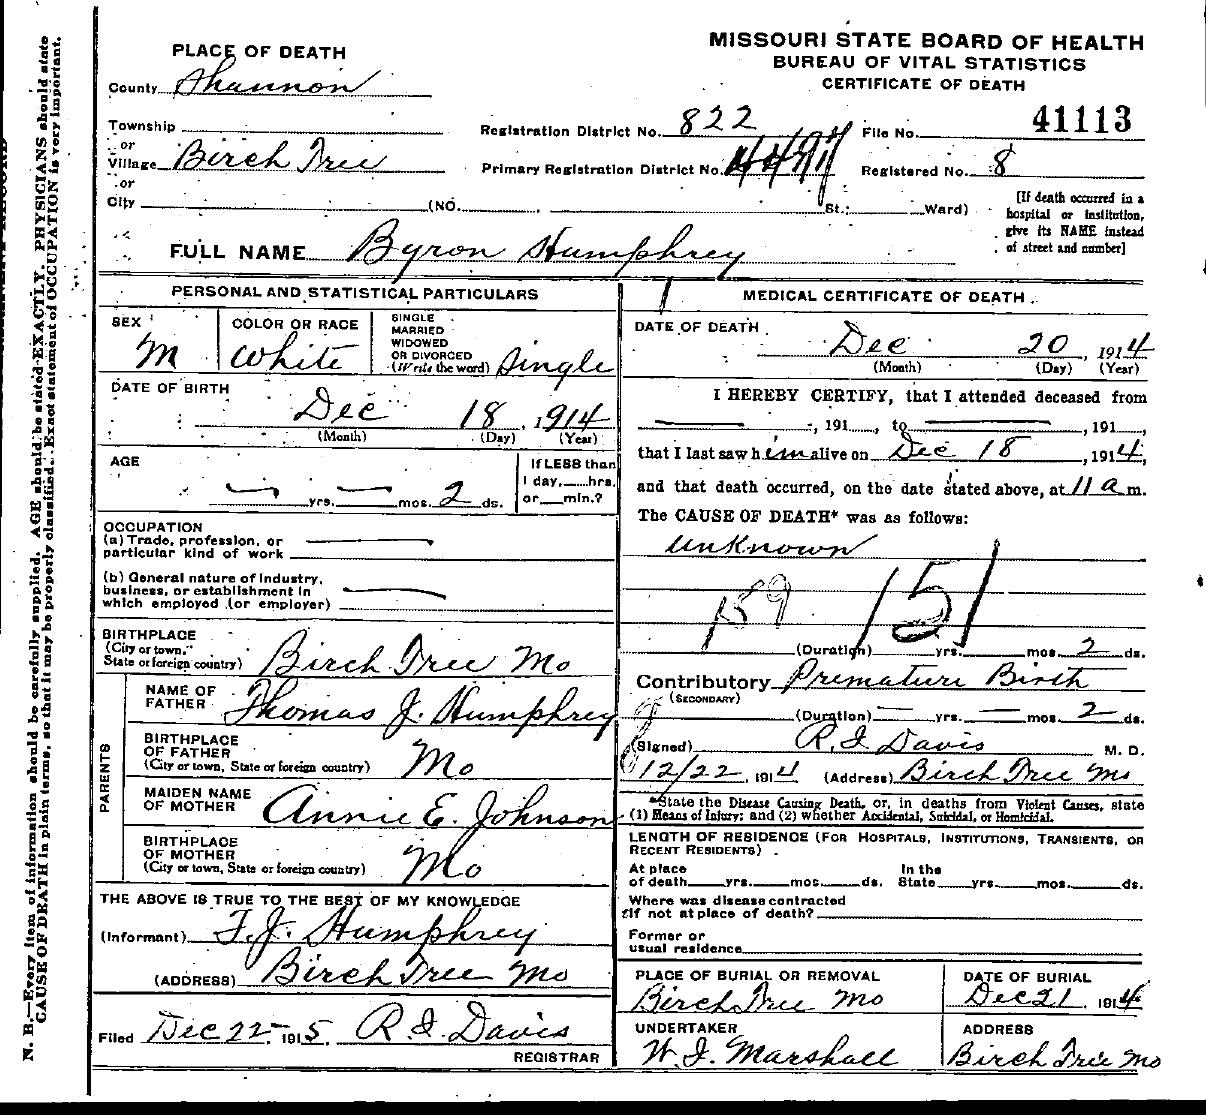 MISSOURI STATE BOARD OF HEALTH
BUREAU OF VITAL STATISTICS
CERTIFICATE OF DEATH
PLACE OF DEATH
County Shannon
Township
or
Village Birch Tree
or
City (NO. St.; Ward)
Registration District No. 822
File No. 41113
Primary Registration District No.
Registered No. 8
[If death occurred in a
hospital or institution,
give its NAME instead
of street and number]
FULL NAME Byron Humphrey
PERSONAL AND STATISTICAL PARTICULARS
SEX M
COLOR OR RACE White
SINGLE
MARRIED
WIDOWED
OR DIVORCED
(Write the word) Single
DATE OF BIRTH
Dec 18, 1914
(Month) (Day) (Year)
AGE
— yrs. — mos. 2 ds.
If LESS than
1 day, hrs.
or min.?
OCCUPATION
(a) Trade, profession, or
particular kind of work —
(b) General nature of industry,
business, or establishment in
which employed (or employer) —
BIRTHPLACE
(City or town,
State or foreign country) Birch Tree Mo
PARENTS
NAME OF
FATHER Thomas J. Humphrey
BIRTHPLACE
OF FATHER
(City or town, State or foreign country) Mo
MAIDEN NAME
OF MOTHER Annie E. Johnson
BIRTHPLACE
OF MOTHER
(City or town, State or foreign country) Mo
THE ABOVE IS TRUE TO THE BEST OF MY KNOWLEDGE
(Informant) T.J. Humphrey
(ADDRESS) Birch Tree Mo
Filed Dec 22 1915, R. I. Davis
REGISTRAR
MEDICAL CERTIFICATE OF DEATH
DATE OF DEATH
Dec 20, 1914
(Month) (Day) (Year)
I HEREBY CERTIFY, that I attended deceased from
—, 191, to —, 191,
that I last saw him alive on Dec 18, 1914,
and that death occurred, on the date stated above, at 11 a m.
The CAUSE OF DEATH* was as follows:
Unknown
159 151
(Duration) yrs. mos. 2 ds.
Contributory Premature Birth
(SECONDARY)
(Duration) — yrs. — mos. 2 ds.
(Signed) R. I. Davis M. D.
12/22, 1914 (Address) Birch Tree Mo
*State the Disease Causing Death, or, in deaths from Violent Causes, state
(1) Means of Injury; and (2) whether Accidental, Suicidal, or Homicidal.
LENGTH OF RESIDENCE (FOR HOSPITALS, INSTITUTIONS, TRANSIENTS, OR
RECENT RESIDENTS)
At place In the
of death yrs. mos. ds. State yrs. mos. ds.
Where was disease contracted
if not at place of death?
Former or
usual residence
PLACE OF BURIAL OR REMOVAL
Birch Tree Mo
DATE OF BURIAL
Dec 21 1914
UNDERTAKER
W. I. Marshall
ADDRESS
Birch Tree Mo
N. B.—Every item of information should be carefully supplied. AGE should be stated EXACTLY. PHYSICIANS should state
CAUSE OF DEATH in plain terms, so that it may be properly classified. Exact statement of OCCUPATION is very important.